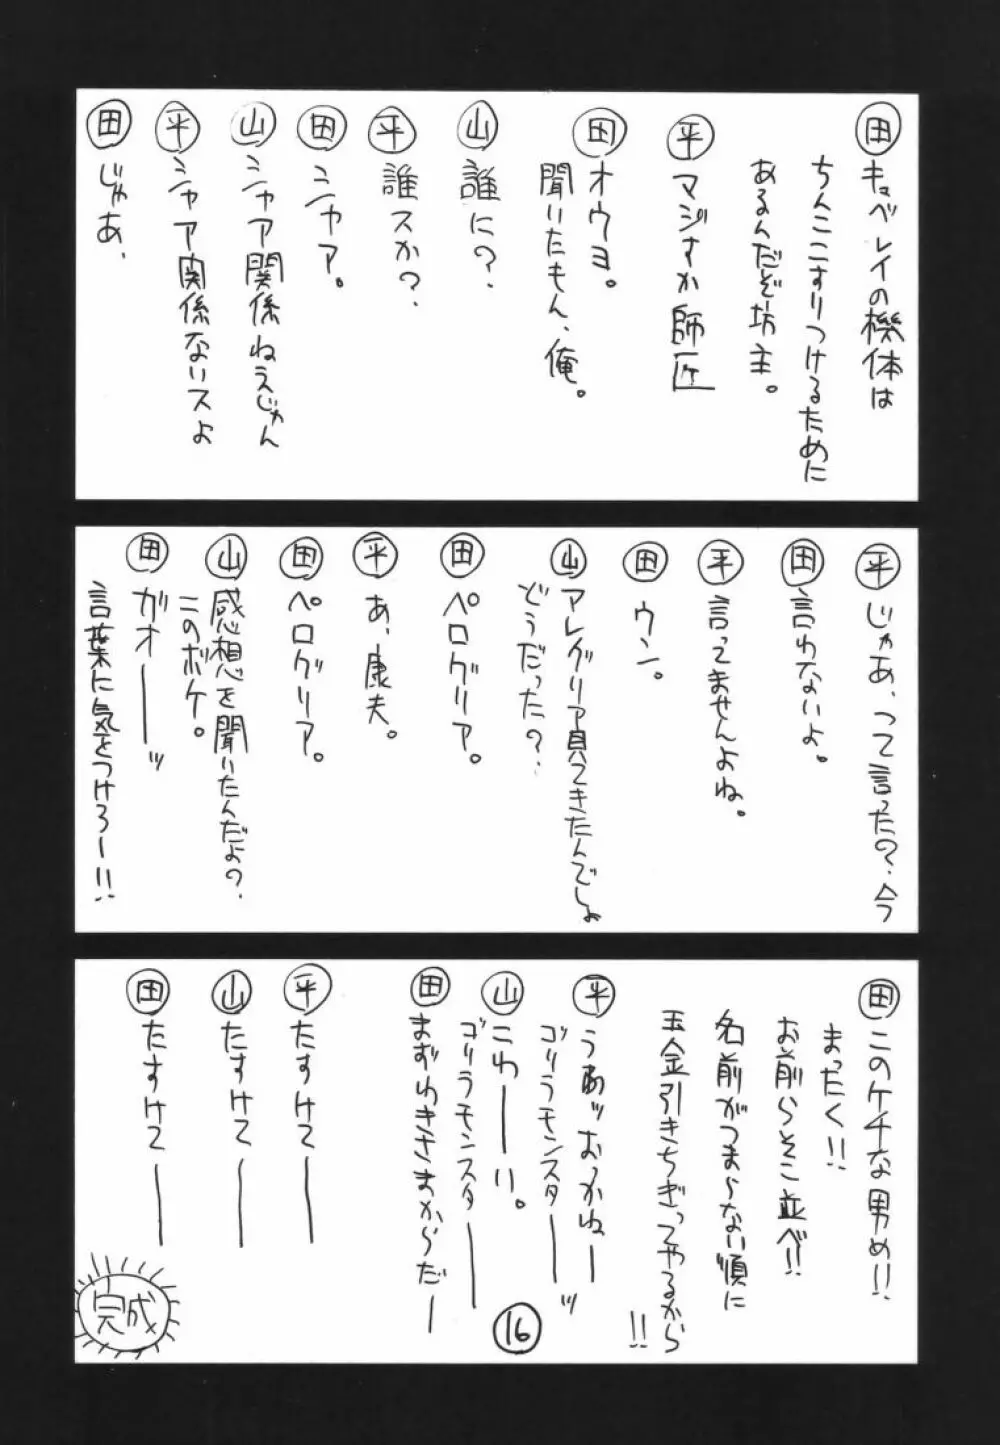 田 キュベレイの機体は
ちんここすりつけるために
あるんだぞ坊主。
平 マジすか師匠
田 オウヨ。
聞いたもん、俺。
山 誰に?
平 誰スか?
田 シャア。
山 シャア関係ねえじゃん
平 シャア関係ないスよ
田 じゃあ、
平 じゃあ、って言った?今
田 言わないよ。
平 言ってませんよね。
田 ウン。
山 アレグリア見てきたんでしょ
どうだった?
田 ペログリア。
平 あ、康夫。
田 ペログリア。
山 感想を聞いたんだよ?
このボケ。
田 ガオーーッ
言葉に気をつけろー!!
田 このケチな男め!!
まったく!!
お前らそこ並べ!!
名前がつまらない順に
玉金引きちぎってやるから
!!
平 うおッおっかねー
ゴリラモンスターーッ
山 こわーーい。
ゴリラモンスターーー
田 まずわきさまからだー
平 たすけてーー
山 たすけてーー
田 たすけてーー
16
完成